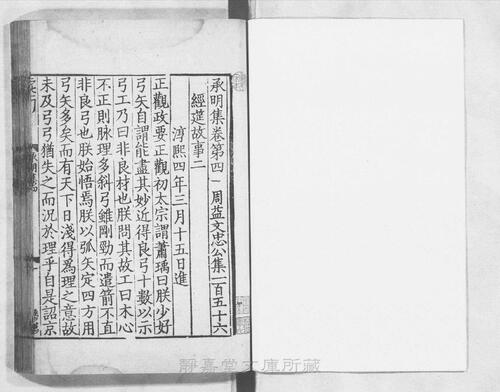 承明集卷第四　周益文忠公集一百五十六
經筵故事二
淳熙四年三月十五日進
正觀政要正觀初太宗謂蕭瑀曰朕少好
弓矢自謂能盡其妙近得良弓十數以示
弓工乃曰非良材也朕問其故工曰木心
不正則脉理多斜弓雖剛勁而遣箭不直
非良弓也朕始悟焉朕以弧矢定四方用
弓矢多矣而有天下日淺得為理之意故
未及弓弓猶失之而況於理乎自是詔京
靜嘉堂文庫所藏